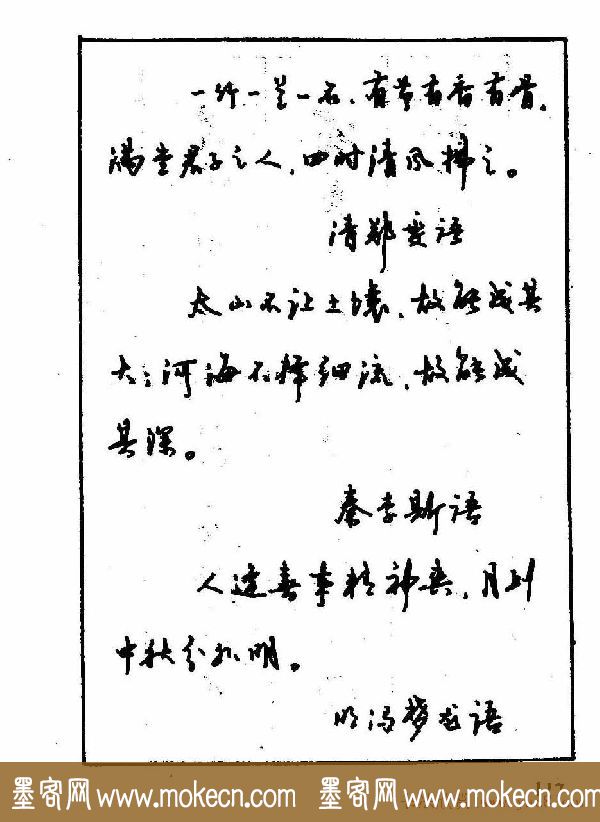 一竹一兰一石，有节有香有骨，
满堂君子之人，四时清风拂之。
清郑燮语
太山不让土壤，故能成其
大；河海不择细流，故能成
其深。
秦李斯语
人逢喜事精神爽，月到
中秋分外明。
明冯梦龙语
墨客网 www.mokecn.com 墨客网 www.mokecn.com